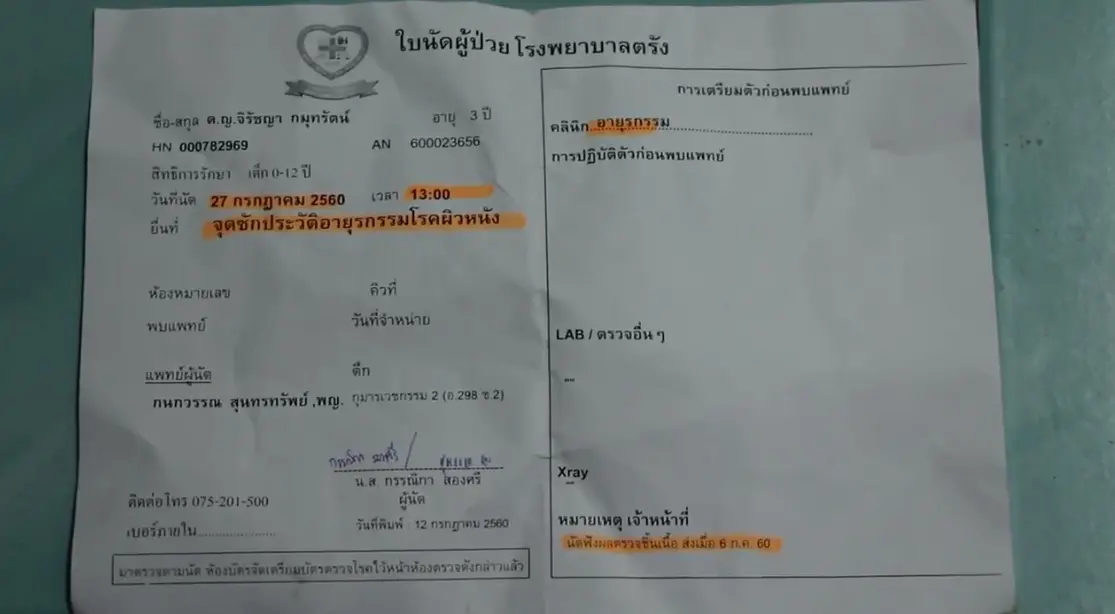 ใบนัดผู้ป่วย โรงพยาบาลตรัง
ชื่อ-สกุล ด.ญ.จิรัชญา กมุทรัตน์ อายุ 3 ปี
HN 000782969 AN 600023656
สิทธิการรักษา เด็ก 0-12 ปี
วันที่นัด 27 กรกฎาคม 2560 เวลา 13:00
ยื่นที่ จุดซักประวัติอายุรกรรมโรคผิวหนัง
ห้องหมายเลข คิวที่
พบแพทย์ วันที่จำหน่าย
แพทย์ผู้นัด ตึก
กนกวรรณ สุนทรทรัพย์ ,พญ. กุมารเวชกรรม 2 (อ.298 ช.2)
น.ส. กรรณิกา สองศรี
ผู้นัด
ติดต่อโทร 075-201-500
วันที่พิมพ์ : 12 กรกฎาคม 2560
เบอร์ภายใน....................
มาตรวจตามนัด ห้องบัตรจัดเตรียมบัตรตรวจโรคไว้หน้าห้องตรวจดังกล่าวแล้ว
การเตรียมตัวก่อนพบแพทย์
คลินิก อายุรกรรม
การปฏิบัติตัวก่อนพบแพทย์
LAB / ตรวจอื่น ๆ
---
Xray
---
หมายเหตุ เจ้าหน้าที่
นัดฟังผลตรวจชิ้นเนื้อ ส่งเมื่อ 6 ก.ค. 60